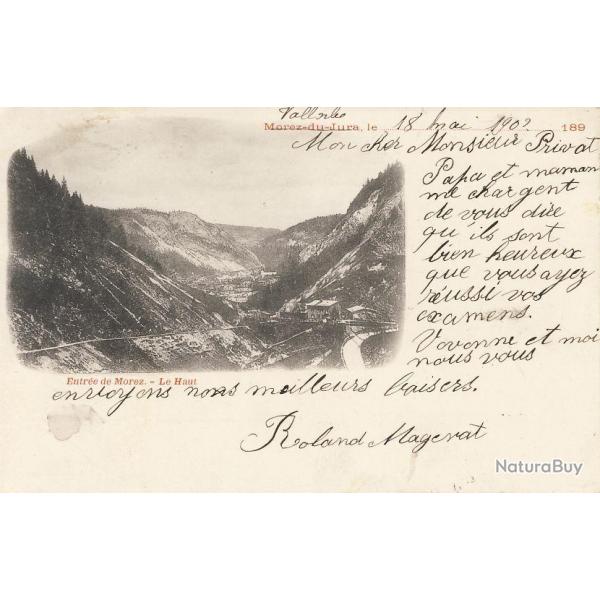 Vallorbe
Morez-du-Jura, le 18 mai 1902 189
Mon cher Monsieur Privat
Papa et maman
me chargent
de vous dire
qu'ils sont
bien heureux
que vous ayez
réussi vos
examens.
Vovonne et moi
nous vous
Entrée de Morez. - Le Haut
envoyons nons meilleurs baisers.
Roland Magerat
NaturaBuy